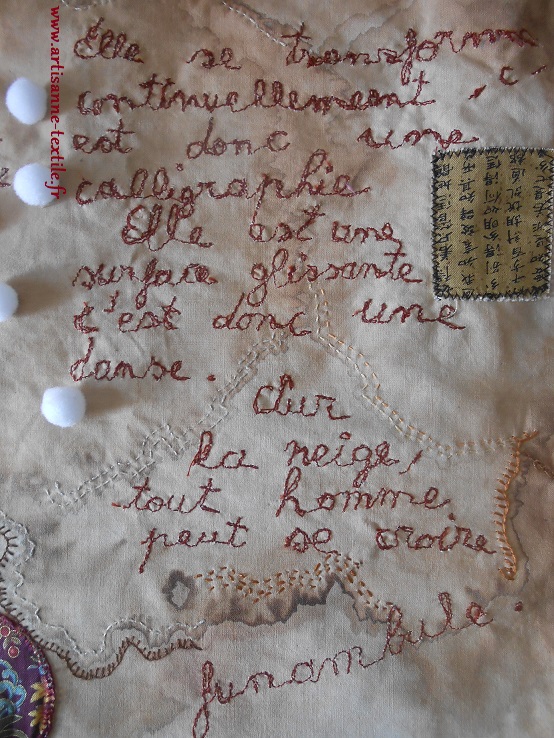 www.artisanne-textile.fr
Elle se transforme
continuellement, c'
est donc une
calligraphie
Elle est une
surface glissante
c'est donc une
danse.
Sur
la neige,
tout homme
peut se croire
funambule.